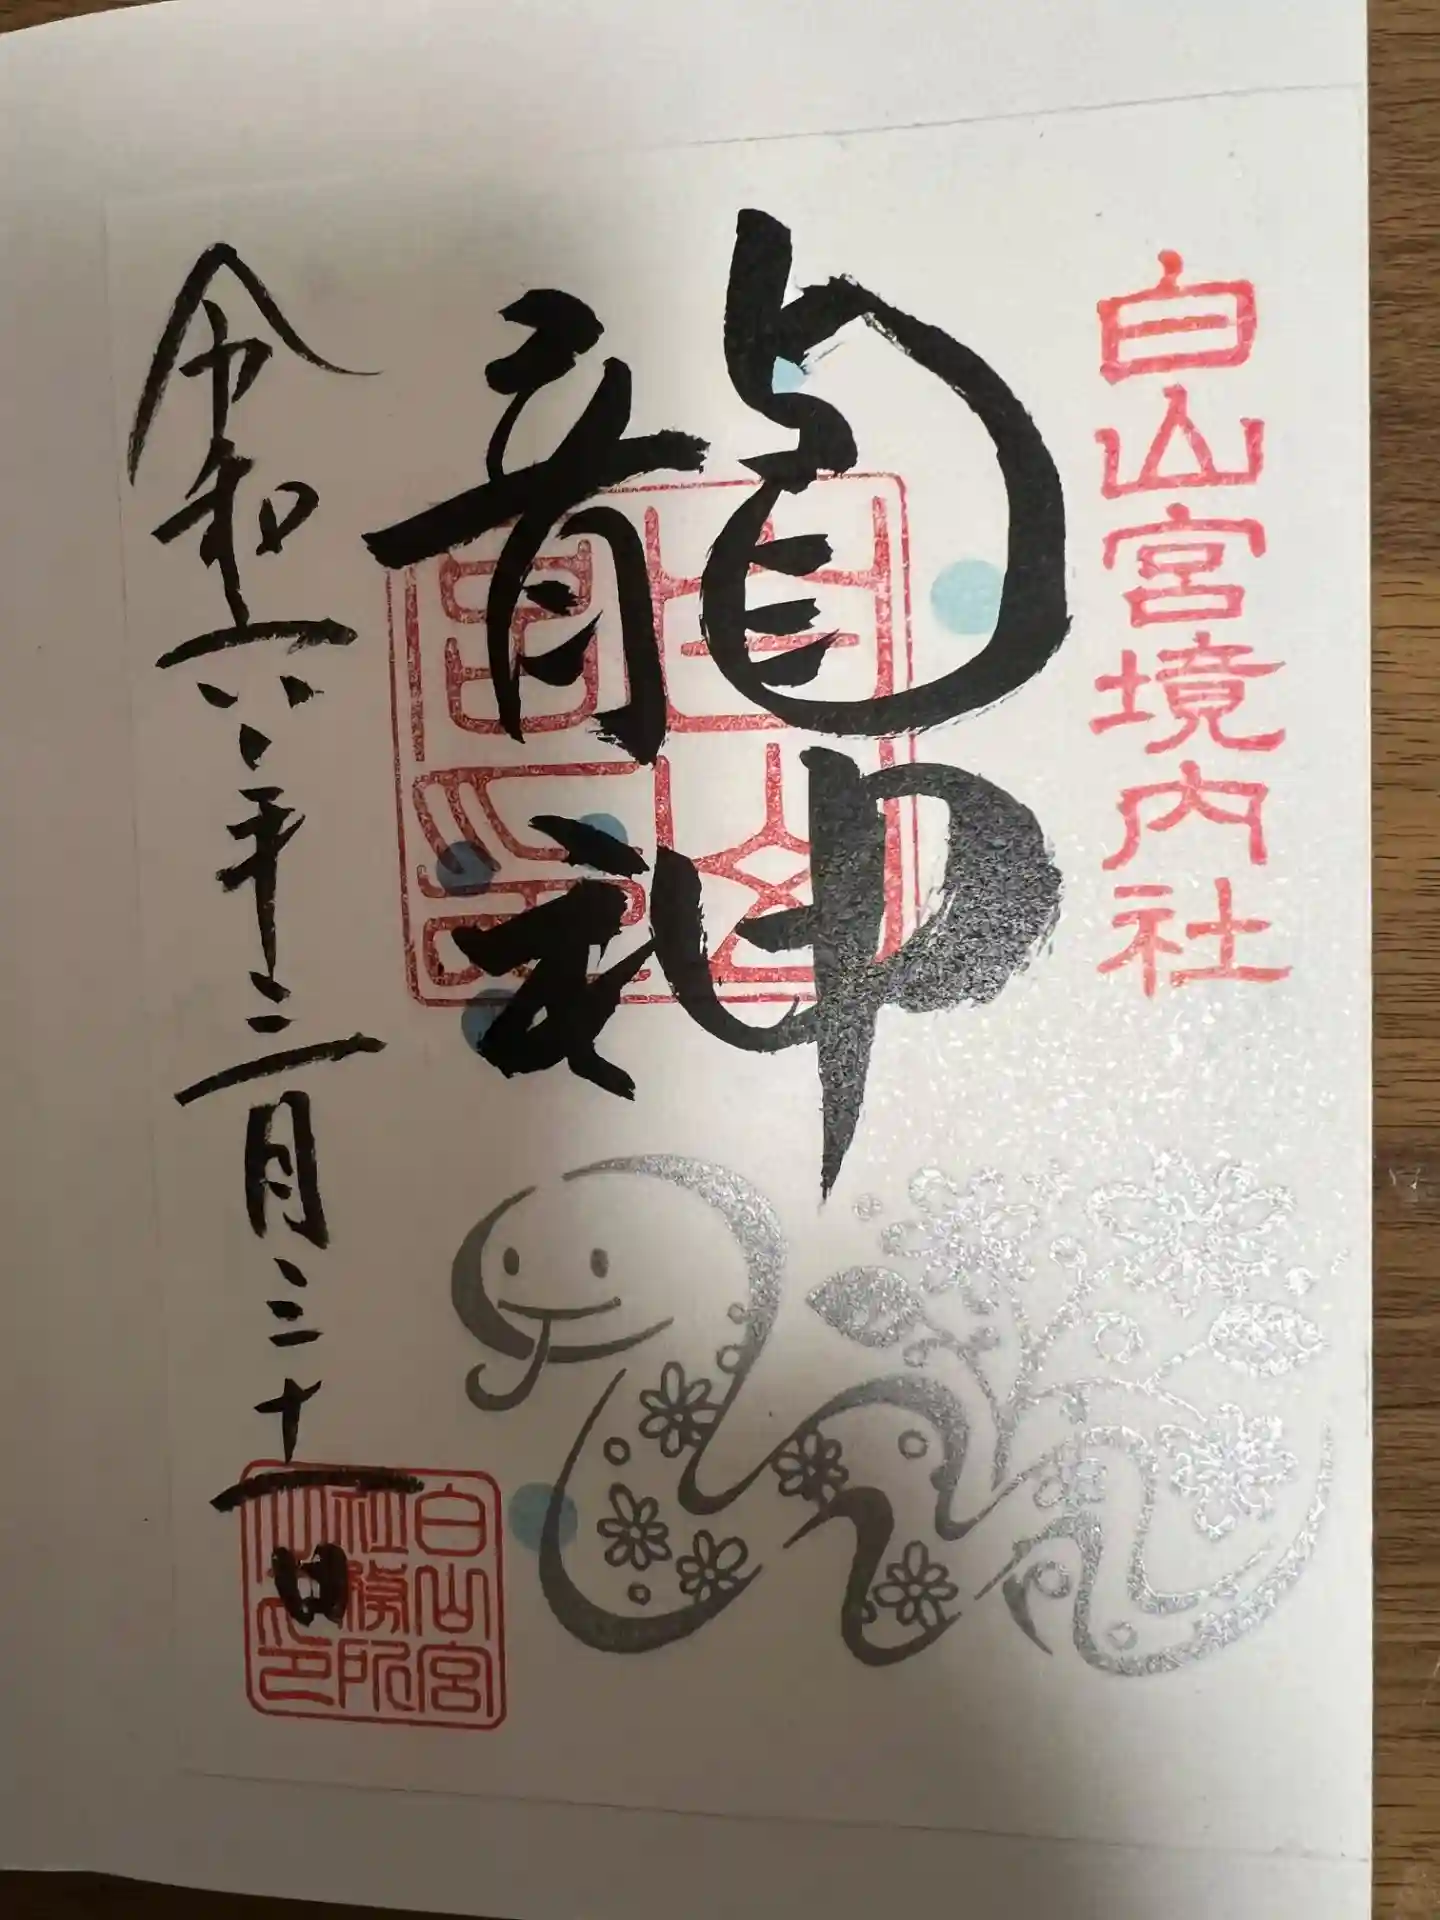 白山宮境内社
龍神
令和六年三月三十一日
白山宮
社務所
之印